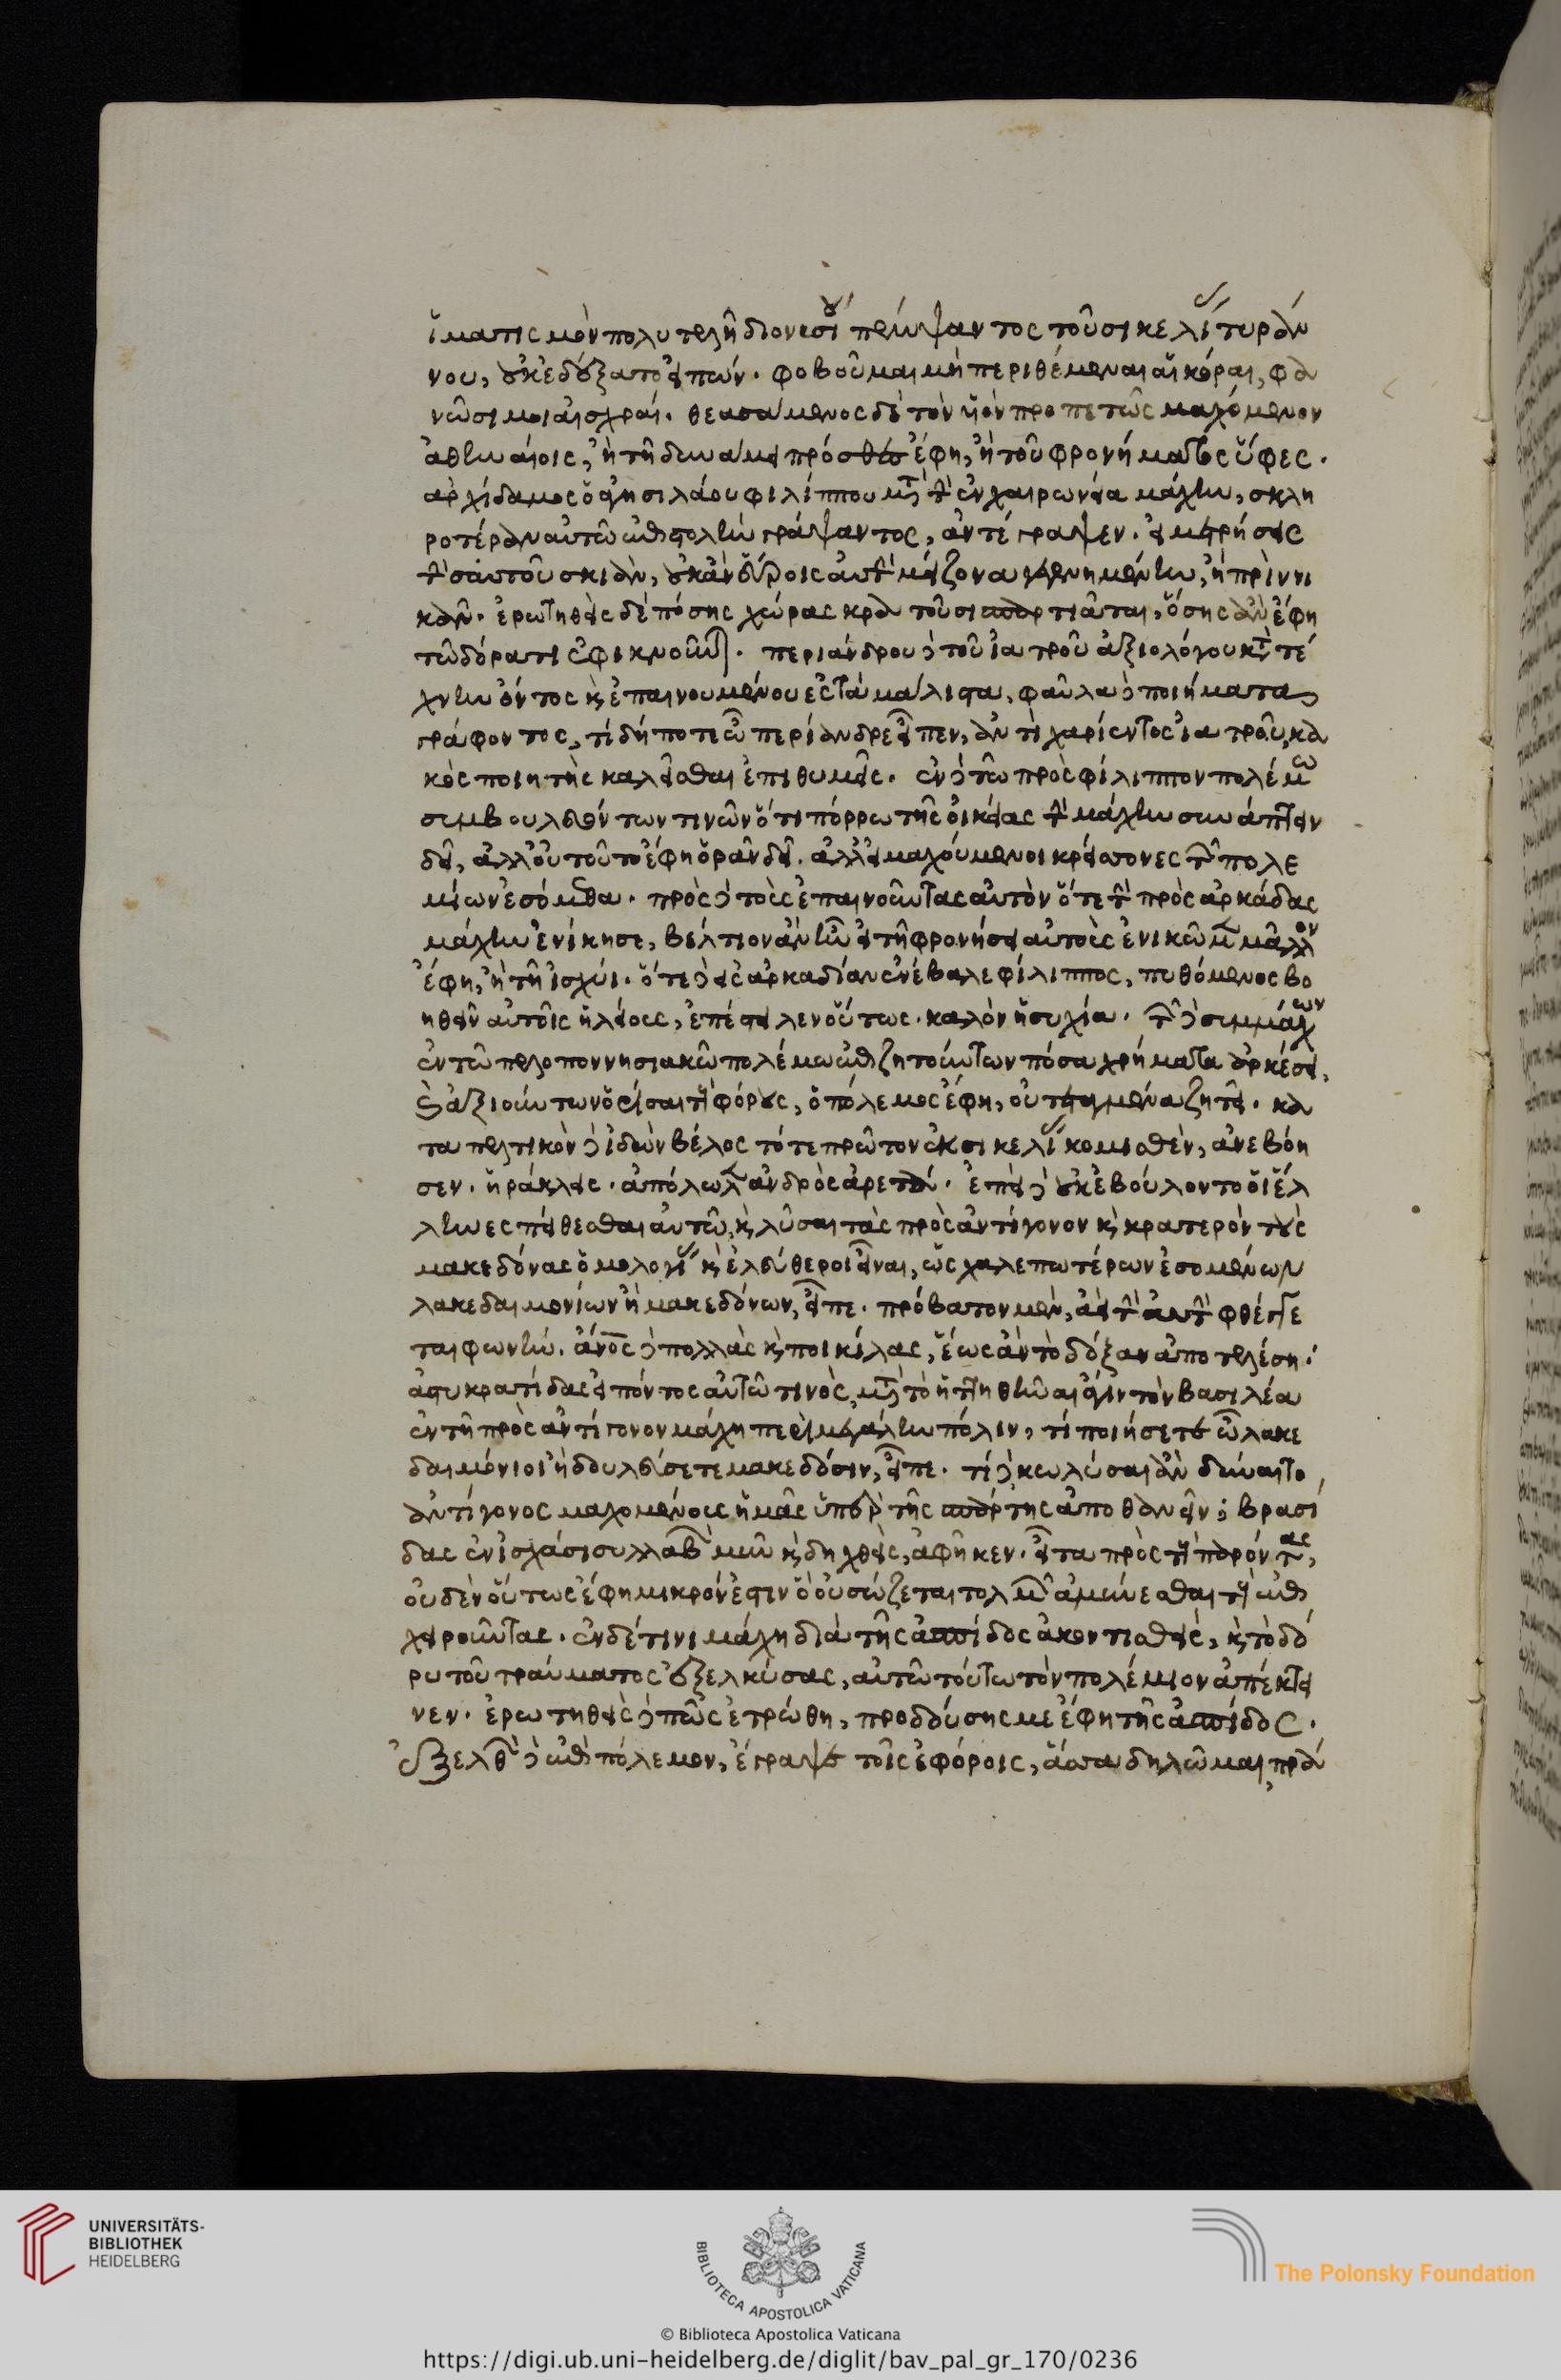 ἱματισμὸν πολυτελῆ διονυσίου πέμψαντος τοῦ σικελίας τυράν
νου, οὐκ ἐδέξατο εἰπών. φοβοῦμαι μὴ περιθέμεναι αἱ κόραι, φα
νῶσι μοι αἰσχραί. θεασάμενος δὲ τὸν υἱὸν προπετῶς μαχόμενον
ἀθηναίοις, ἢ τῇ δυνάμει πρόσθες ἔφη, ἢ τοῦ φρονήματος ὕφες.
ἀρχίδαμος ὁ ἀγησιλάου φιλίππου μετὰ τὴν ἐν χαιρωνεία μάχην, σκλη
ροτέραν αὐτῶ ἐπιστολὴν γράψαντος, ἀντέγραψεν. εἰ μετρήσεις
τὴν σαυτοῦ σκιὰν, οὐκ ἂν εὕροις αὐτὴν μείζονα γεγενημένην, ἢ πρὶν νι
κᾶν. ἐρωτηθεὶς δὲ πόσης χώρας κρατοῦσι σπαρτιᾶται, ὅσης ἂν ἔφη
τῶ δόρατι ἐφικνοῦνται. περιάνδρου δὲ τοῦ ἰατροῦ ἀξιολόγου κατὰ τέ
χνην ὄντος καὶ ἐπαινουμένου ἐς τὰ μάλιστα, φαῦλα δὲ ποιήματα
γράφοντος, τί δή ποτε ὦ περίανδρε εἶπεν, ἀντὶ χαρίεντος ἰατροῦ, κα
κὸς ποιητὴς καλεῖσθαι ἐπιθυμεῖς. ἐν δὲ τῶ πρὸς φίλιππον πολέμω
συμβουλευόντων τινῶν ὅτι πόρρω τῆς οἰκείας τὴν μάχην συνάπτειν
δεῖ, ἀλλ' οὐ τοῦτο ἔφη ὁρᾶν δεῖ. ἀλλ' εἰ μαχούμενοι κρείσσονες τῶν πολε
μίων ἐσόμεθα. πρὸς δὲ τοὺς ἐπαινοῦντας αὐτὸν ὅτε τὴν πρὸς ἀρκάδας
μάχην ἐνίκησε, βέλτιον ἂν ἦν εἰ τῇ φρονήσει αὐτοὺς ἐνικῶμεν μᾶλλον
ἔφη, ἢ τῇ ἰσχύι. ὅτε δὲ εἰς ἀρκαδίαν ἐνέβαλε φίλιππος, πυθόμενος βο
ηθεῖν αὐτοῖς ἠλείους, ἐπέστειλεν οὕτως. καλὸν ἡσυχία. τῶν δὲ συμμάχων
ἐν τῶ πελοποννησιακῶ πολέμω ἐπιζητούντων πόσα χρήματα ἀρκέσει,
καὶ ἀξιούντων ὁρίσαι τοὺς φόρους, ὁ πόλεμος ἔφη, οὐ τεταγμένα ζητεῖ. κα
ταπελτικὸν δὲ ἰδὼν βέλος τότε πρῶτον ἐκ σικελίας κομισθὲν, ἀνεβόη
σεν. ἡράκλεις. ἀπόλωλεν ἀνδρὸς ἀρετά. ἐπεὶ δὲ οὐκ ἐβούλοντο οἱ ἕλ
ληνες πείθεσθαι αὐτῶ, καὶ λῦσαι τὰς πρὸς ἀντίγονον καὶ κρατερὸν τοὺς
μακεδόνας ὁμολογίας καὶ ἐλεύθεροι εἶναι, ὡς χαλεπωτέρων ἐσομένων
λακεδαιμονίων ἢ μακεδόνων, εἶπε. πρόβατον μὲν, ἀεὶ τὴν αὐτὴν φθέγγε
ται φωνήν. ἄνθρωπος δὲ πολλὰς καὶ ποικίλας, ἕως ἂν τὸ δόξαν ἀποτελέσῃ.
ἀστυκρατίδας εἰπόντος αὐτῶ τινὸς, μετὰ τὸ ἡττηθῆναι ἄγιν τὸν βασιλέα
ἐν τῇ πρὸς ἀντίγονον μάχη περὶ μεγάλην πόλιν, τί ποιήσετε ὦ λακε
δαιμόνιοι ἢ δουλεύσετε μακεδόσιν, εἶπε. τί δὲ κωλύσαι ἂν δύναιτο
ἀντίγονος μαχομένους ἡμᾶς ὑπὲρ τῆς σπάρτης ἀποθανεῖν; βρασί
δας ἐν ἰσχάσι συλλαβὼν μῦν καὶ δηχθεὶς, ἀφῆκεν. εἶτα πρὸς τοὺς παρόντας,
οὐδὲν οὕτως ἔφη μικρόν ἐστιν ὃ οὐ σώζεται τολμῶν ἀμύνεσθαι τοὺς ἐπι
χειροῦντας. ἐν δέ τινι μάχη διὰ τῆς ἀσπίδος ἀκοντισθεὶς, καὶ τὸ δό
ρυ τοῦ τραύματος ἐξελκύσας, αὐτῶ τούτω τὸν πολέμιον ἀπέκτει
νεν. ἐρωτηθεὶς δὲ πῶς ἐτρώθη, προδούσης με ἔφη τῆς ἀσπίδος.
ἐξελθὼν δὲ ἐπὶ πόλεμον, ἔγραψε τοῖς ἐφόροις, ἅσσα δηλῶμαι, πρά
UNIVERSITÄTS-
BIBLIOTHEK
HEIDELBERG
BIBLIOTECA APOSTOLICA VATICANA
The Polonsky Foundation
© Biblioteca Apostolica Vaticana
https://digi.ub.uni-heidelberg.de/diglit/bav_pal_gr_170/0236